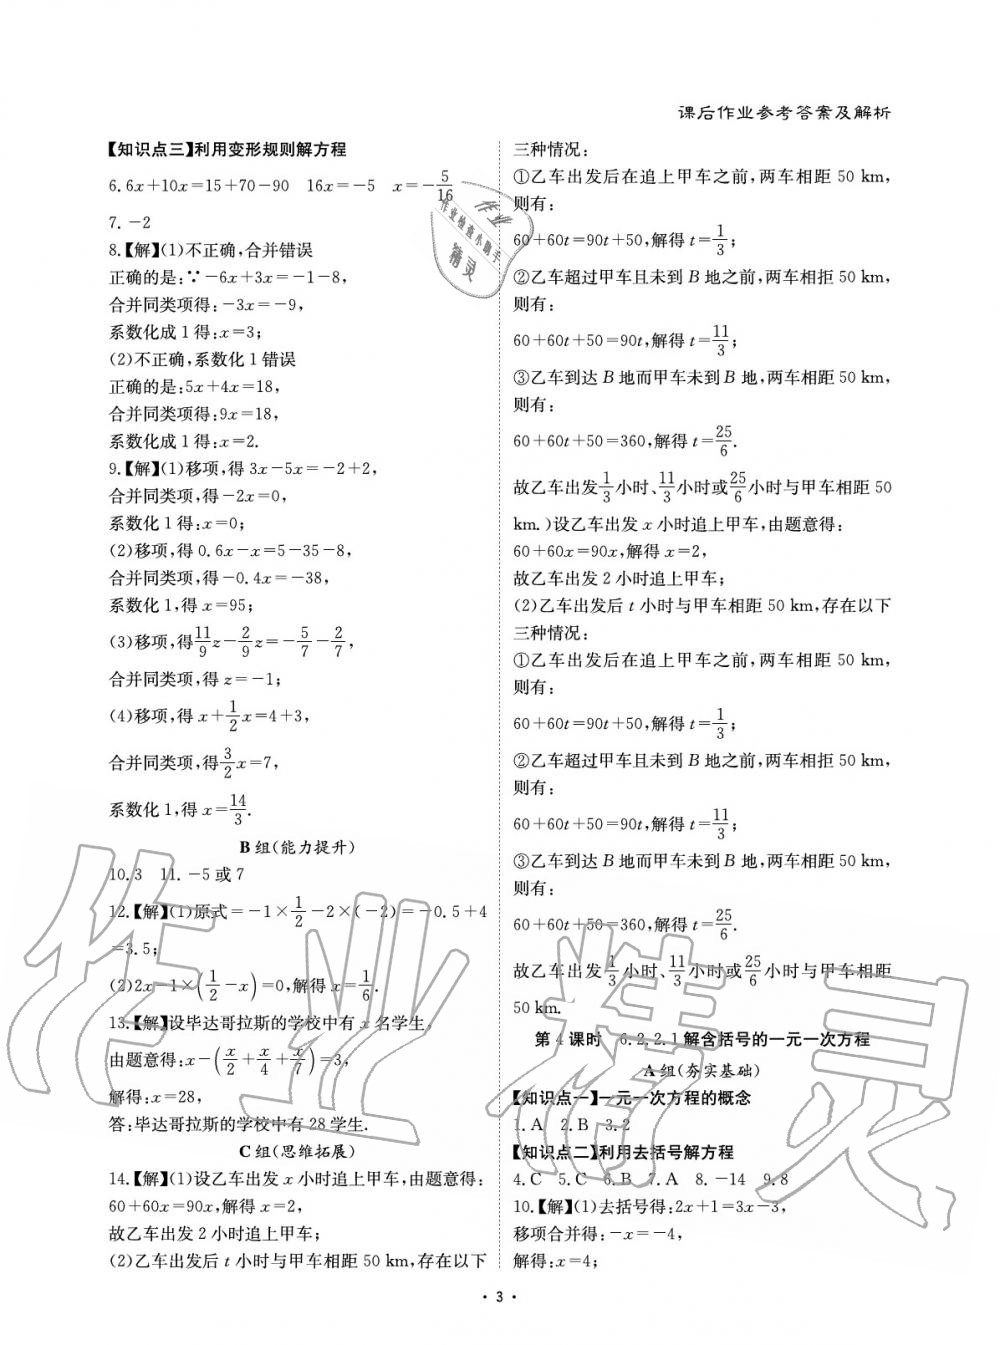 课后作业参考答案及解析
【知识点三】利用变形规则解方程
6.6x+10x=15+70-90 16x=-5 x=-5/16
7.-2
8.【解】(1)不正确,合并错误
正确的是:∵-6x+3x=-1-8,
合并同类项得:-3x=-9,
系数化成1得:x=3;
(2)不正确,系数化1错误
正确的是:5x+4x=18,
合并同类项得:9x=18,
系数化成1得:x=2.
9.【解】(1)移项,得3x-5x=-2+2,
合并同类项,得-2x=0,
系数化1得:x=0;
(2)移项,得0.6x-x=5-35-8,
合并同类项,得-0.4x=-38,
系数化1,得x=95;
(3)移项,得11/9z-2/9z=-5/7-2/7,
合并同类项,得z=-1;
(4)移项,得x+1/2x=4+3,
合并同类项,得3/2x=7,
系数化1,得x=14/3.
B组(能力提升)
10.3 11.-5或7
12.【解】(1)原式=-1×1/2-2×(-2)=-0.5+4
=3.5;
(2)2x-1×(1/2-x)=0,解得x=1/6.
13.【解】设毕达哥拉斯的学校中有x名学生,
由题意得:x-(x/2+x/4+x/7)=3,
解得:x=28,
答:毕达哥拉斯的学校中有28学生.
C组(思维拓展)
14.【解】(1)设乙车出发x小时追上甲车,由题意得:
60+60x=90x,解得x=2,
故乙车出发2小时追上甲车;
(2)乙车出发后t小时与甲车相距50 km,存在以下
三种情况:
①乙车出发后在追上甲车之前,两车相距50 km,
则有:
60+60t=90t+50,解得t=1/3;
②乙车超过甲车且未到B地之前,两车相拒50 km,
则有:
60+60t+50=90t,解得t=11/3;
③乙车到达B地而甲车未到B地,两车相距50 km,
则有:
60+60t+50=360,解得t=25/6.
故乙车出发1/3小时、11/3小时或25/6小时与甲车相距50
km.)设乙车出发x小时追上甲车,由题意得:
60+60x=90x,解得x=2,
故乙车出发2小时追上甲车;
(2)乙车出发后t小时与甲车相距50 km,存在以下
三种情况:
①乙车出发后在追上甲车之前,两车相距50 km,
则有:
60+60t=90t+50,解得t=1/3;
②乙车超过甲车且未到B地之前,两车相距50 km,
则有:
60+60t+50=90t,解得t=11/3;
③乙车到达B地而甲车未到B地,两车相距50 km,
则有:
60+60t+50=360,解得t=25/6.
故乙车出发1/3小时、11/3小时或25/6小时与甲车相距
50 km.
第4课时 6.2.2.1解含括号的一元一次方程
A组(夯实基础)
【知识点一】一元一次方程的概念
1.A 2.B 3.2
【知识点二】利用去括号解方程
4.C 5.C 6.B 7.A 8.-14 9.8
10.【解】(1)去括号得:2x+1=3x-3,
移项合并得:-x=-4,
解得:x=4;
·3·
作业
作业检查小助手
精灵
作业精灵